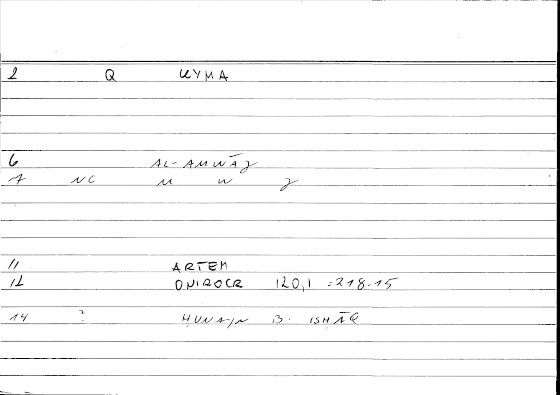 2 Q KYMA
6 AL-AMWĀJ
7 NC M W J
11 ARTEM
12 ONIROCR 120,1 = 218.15
14 ? ḤUNAJN B. ISḤĀQ